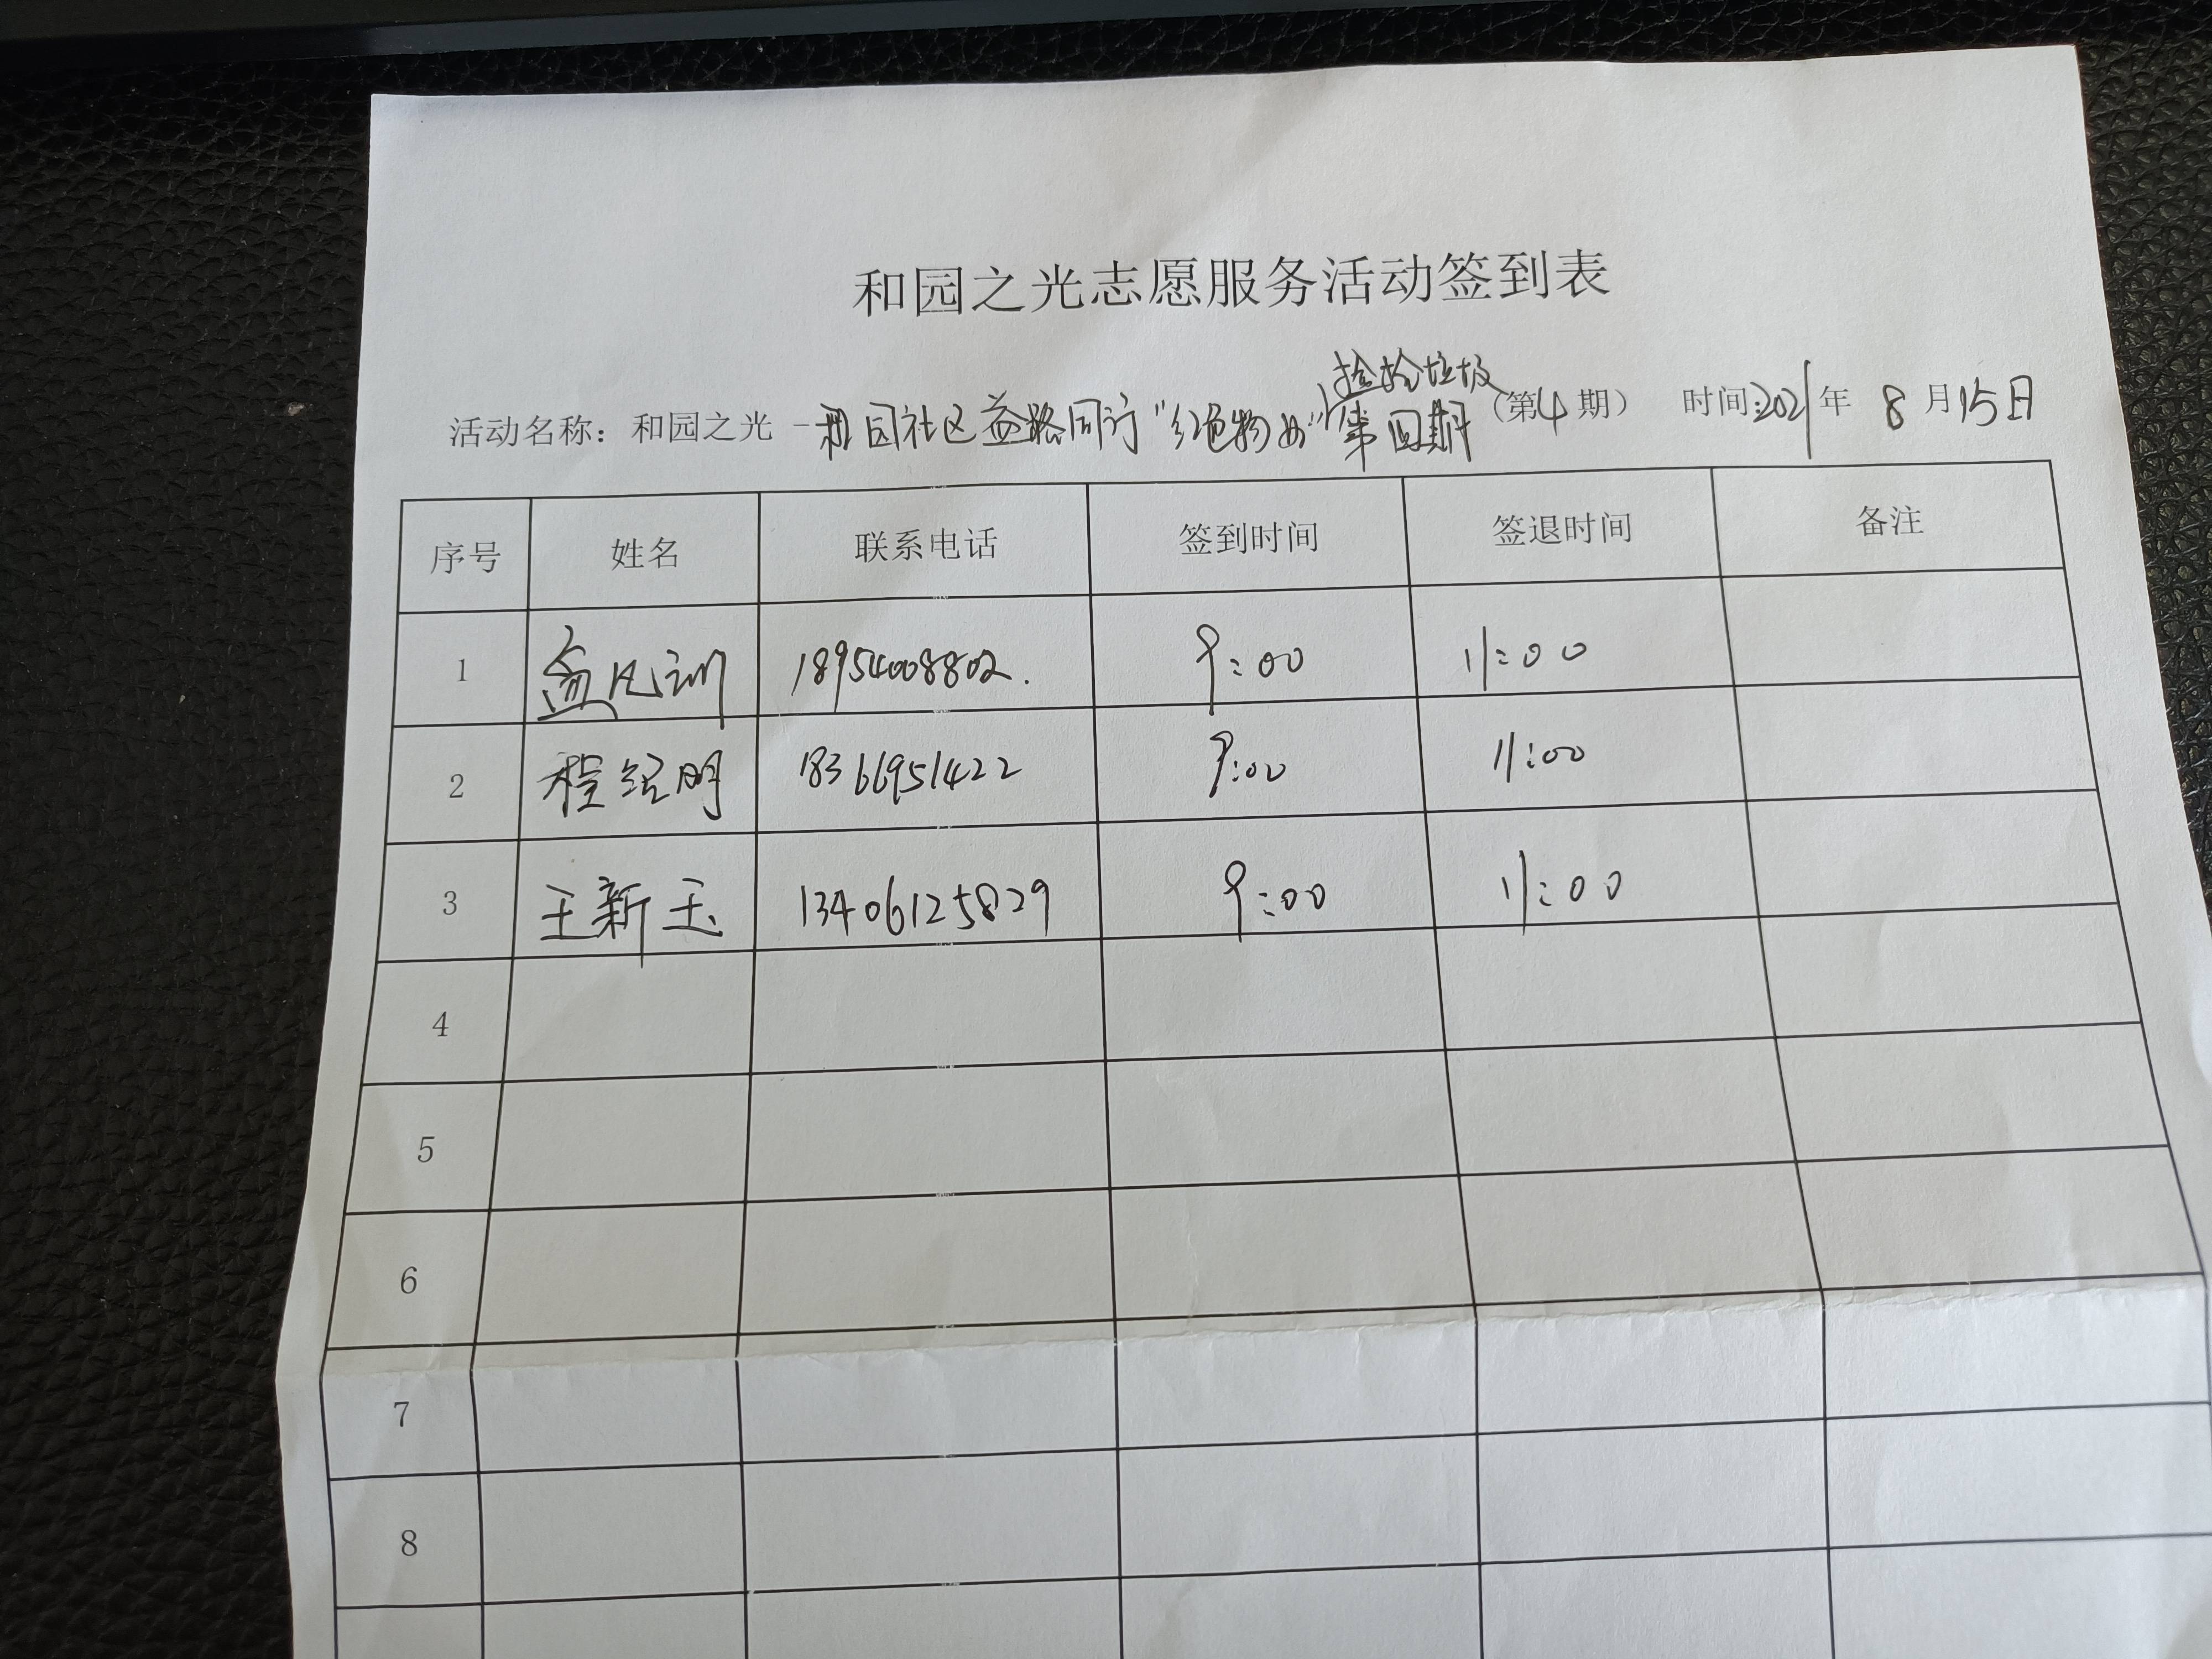 和园之光志愿服务活动签到表
捡拾垃圾
活动名称：和园之光-和园社区益路同行"红色物业"第四期（第4期） 时间:2021年 8月15日
序号 姓名 联系电话 签到时间 签退时间 备注
1 训 18954008802. 9:00 11:00
2 程绍明 18366951422 9:00 11:00
3 王新玉 13406125829 9:00 11:00
4
5
6
7
8